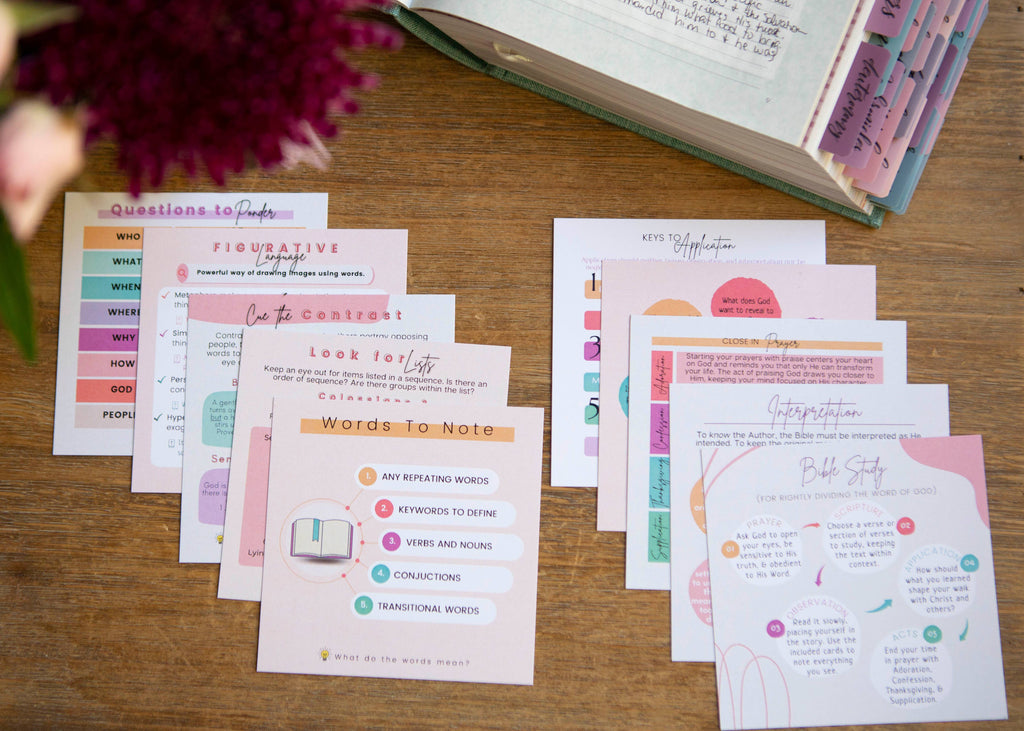 & the Salvation
him what Good to bring
him to & he was
Deuteronomy
Questions to Ponder
WHO
WHAT
WHEN
WHERE
WHY
HOW
GOD
PEOPLE
FIGURATIVE
Language
Powerful way of drawing images using words.
Cue the Contrast
Look for Lists
Keep an eye out for items listed in a sequence. Is there an
order of sequence? Are there groups within the list?
Words To Note
1. ANY REPEATING WORDS
2. KEYWORDS TO DEFINE
3. VERBS AND NOUNS
4. CONJUCTIONS
5. TRANSITIONAL WORDS
What do the words mean?
KEYS TO Application
1
3
5
What does God
want to reveal to
CLOSE IN Prayer
Starting your prayers with praise centers your heart
on God and reminds you that only He can transform
your life. The act of praising God draws you closer to
Him, keeping your mind focused on His character
Adoration
Confession
Thanksgiving
Supplication
Interpretation
To know the Author, the Bible must be interpreted as He
intended. To keep the original
Bible Study
(FOR RIGHTLY DIVIDING THE WORD OF GOD)
PRAYER
01
Ask God to open
your eyes, be
sensitive to His
truth, & obedient
to His Word.
SCRIPTURE
02
Choose a verse or
section of verses
to study, keeping
the text within
context.
OBSERVATION
03
Read it slowly,
placing yourself in
the story. Use the
included cards to
note everything
you see.
APPLICATION
04
How should
what you learned
shape your walk
with Christ and
others?
ACTS
05
End your time
in prayer with
Adoration,
Confession,
Thanksgiving, &
Supplication.